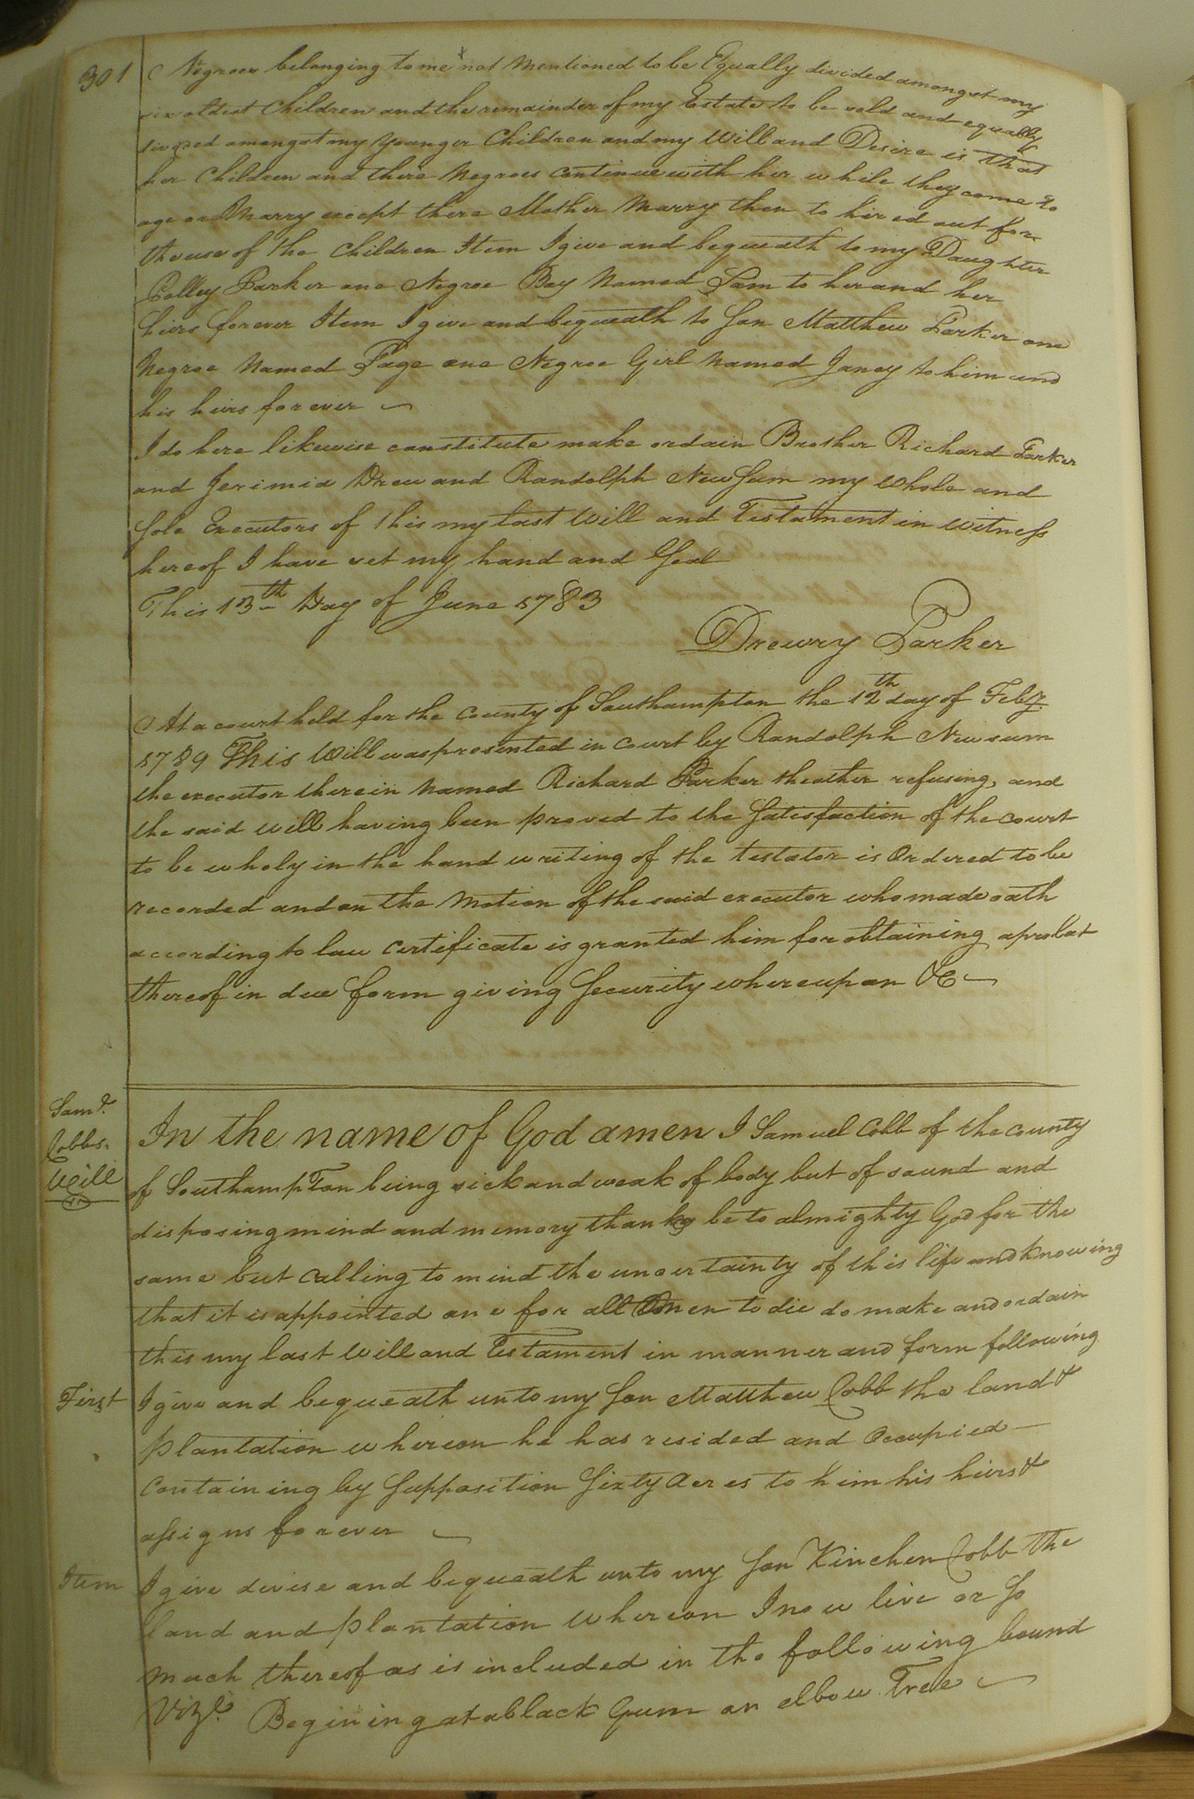 301
Negroes belonging to me not Mentioned to be Equally divided amongst my
six oldest Children and the remainder of my Estate to be sold and equally
divided amongst my younger Children and my Will and Desire is that
her Children and there Negroes continue with her while they come to
age or Marry except there Mother Marry then to hired out for
the use of the Children Item I give and bequeath to my Daughter
Polley Parker one Negroe Boy Named Sam to her and her
heirs forever Item I give and bequeath to Son Matthew Parker one
Negroe Named Page one Negroe Girl Named Janey to him and
his heirs forever
I do here likewise constitute make ordain Brother Richard Parker
and Jerimia Drew and Randolph Newsum my whole and
Sole Executors of this my last Will and Testament in witness
hereof I have set my hand and Seal
This 13th Day of June 1783
Drewry Parker
At a court held for the County of Southampton the 12th day of Feby
1789 This Will was presented in court by Randolph Newsum
the executor therein Named Richard Parker the other refusing, and
the said will having been proved to the Satisfaction of the court
to be wholy in the hand writing of the testator is Ordered to be
recorded and on the Motion of the said executor who made oath
according to law certificate is granted him for obtaining a probat
thereof in due form giving Security whereupon &c
Saml
Cobbs
Will
In the name of God amen I Samuel Cobb of the county
of Southampton being sick and weak of body but of sound and
disposing mind and memory thanks be to almighty God for the
same but calling to mind the uncertainty of this life and knowing
that it is appointed one for all men to die do make and ordain
this my last will and Testament in manner and form following
First I give and bequeath unto my Son Matthew Cobb the land &
plantation whereon he has resided and Occupied
Containing by Supposition Sixty Acres to him his heirs &
assigns forever
Item I give devise and bequeath unto my Son Kinchen Cobb the
land and plantation whereon I now live or So
much thereof as is included in the following bound
Vizt. Begining at a black Gum an elbow Tree